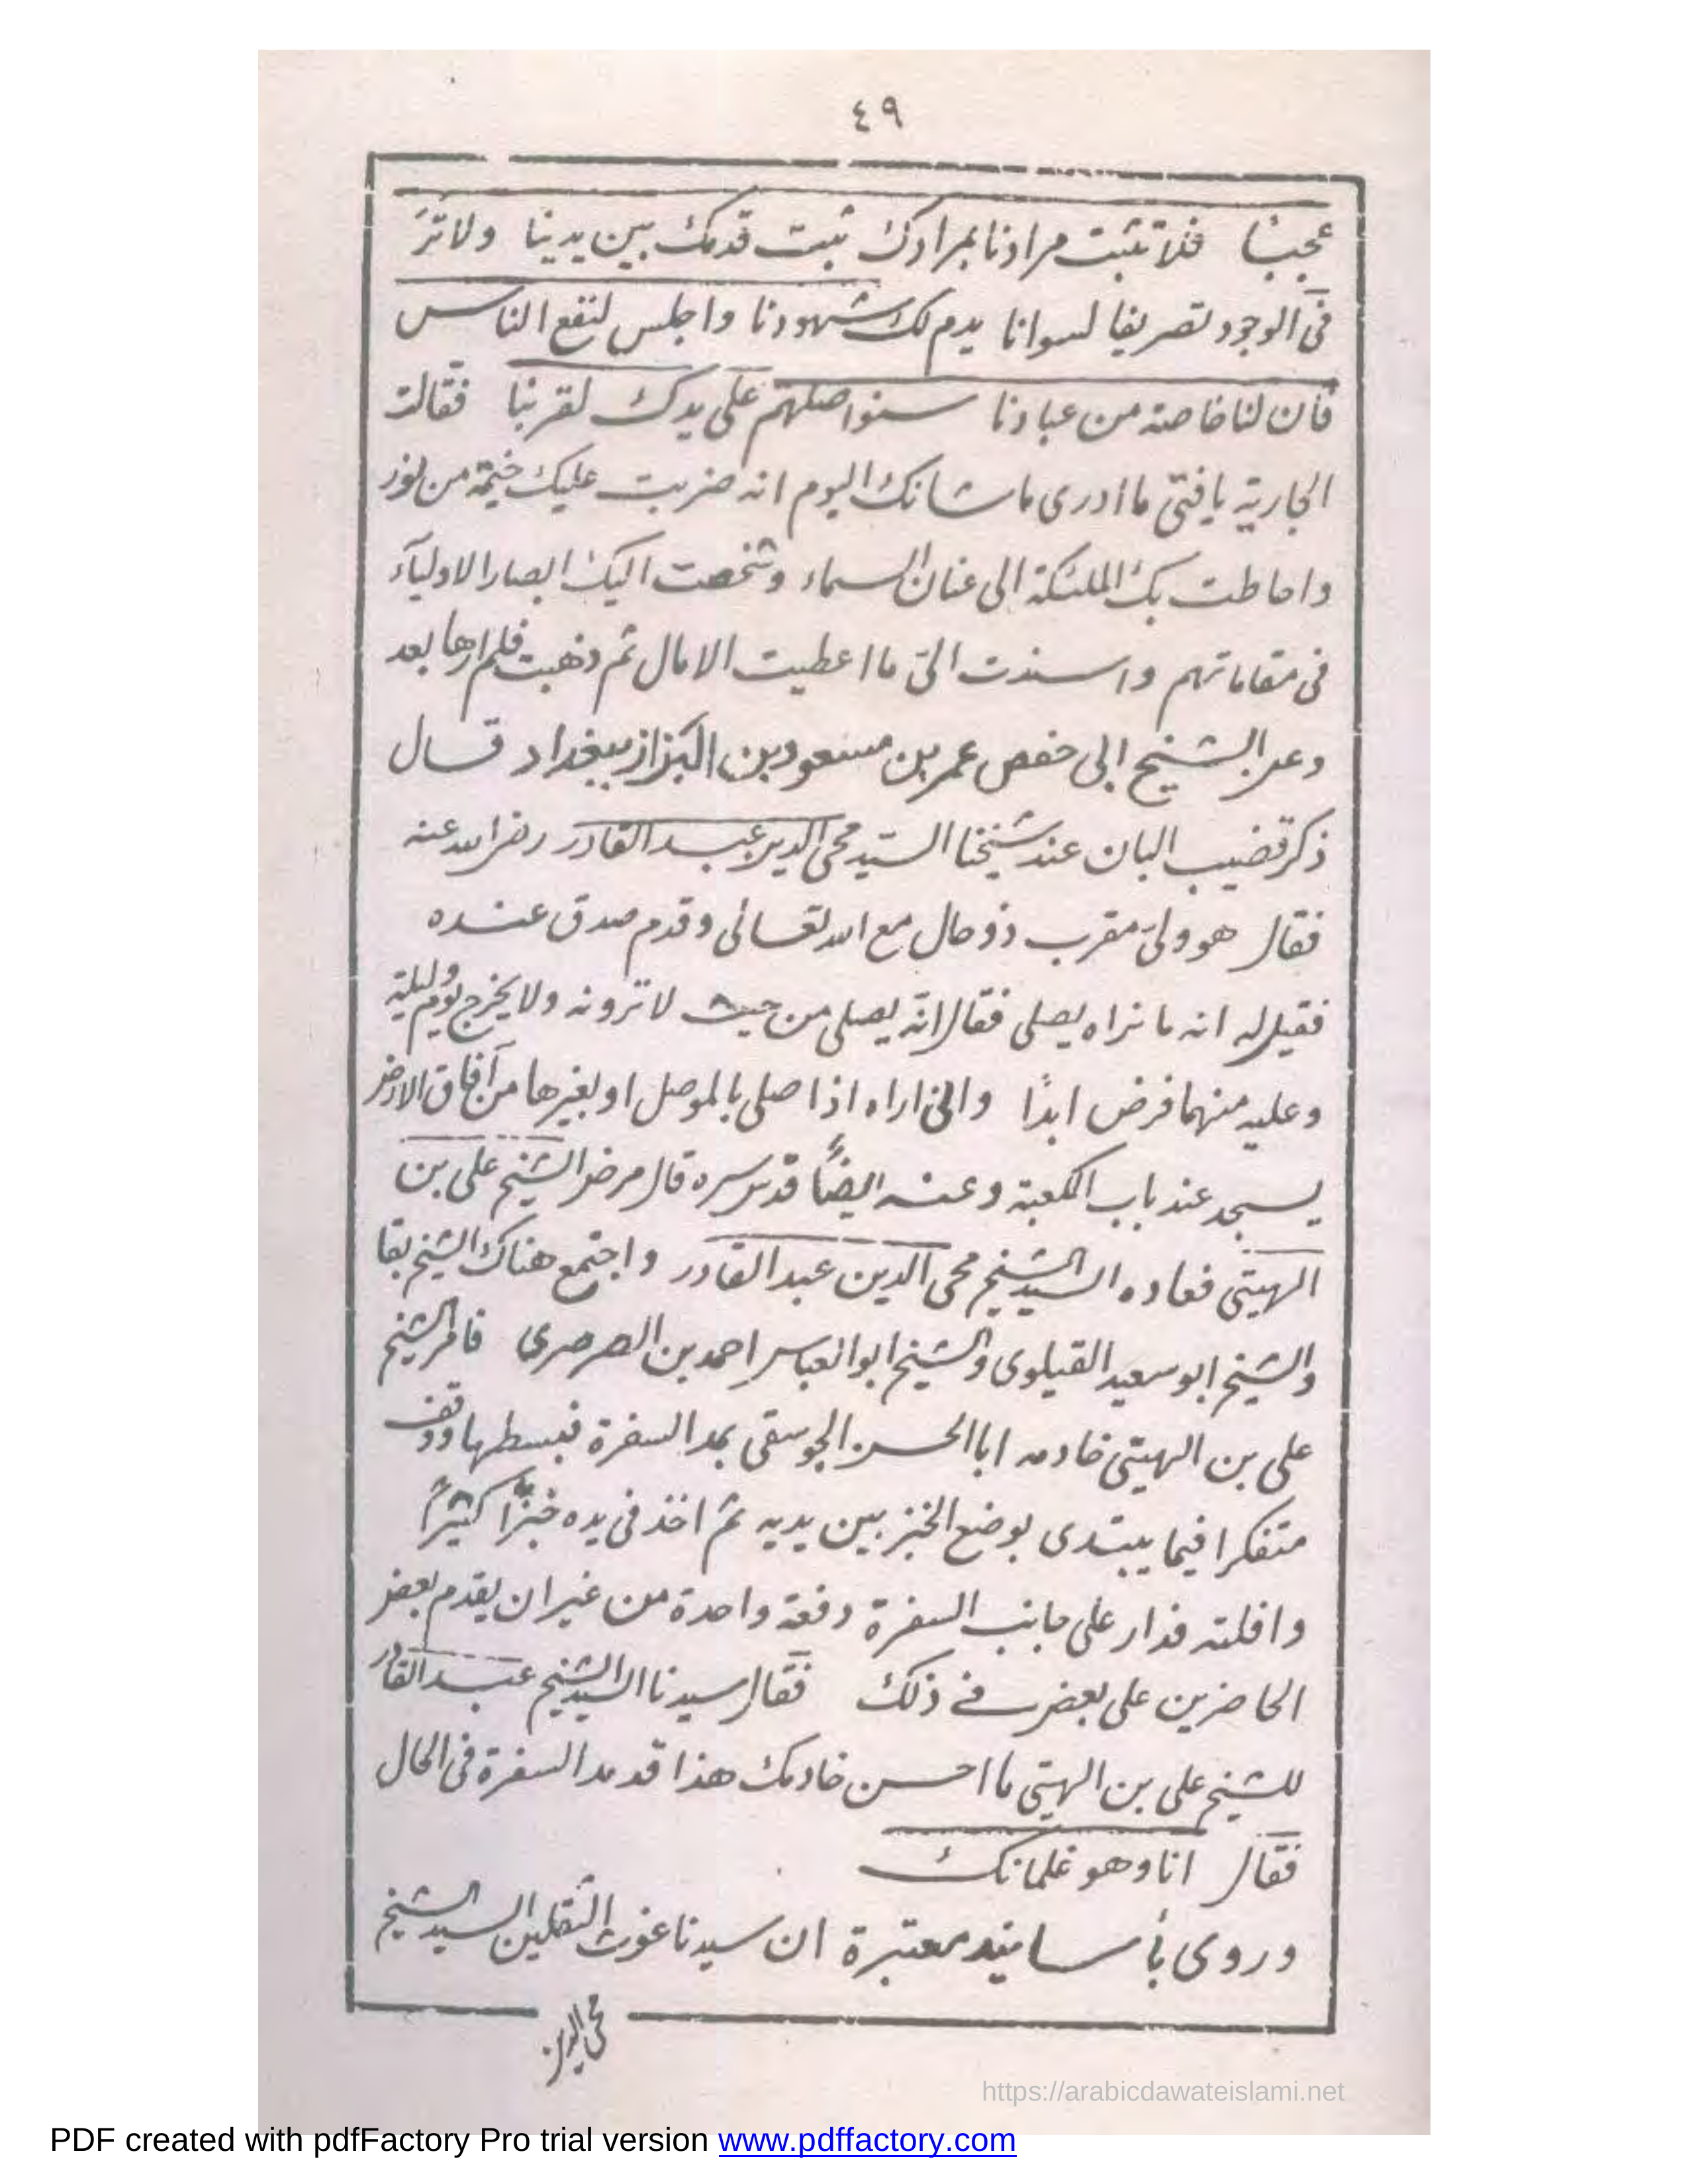 ٤٩
عجبنا فلا تثبت مرادنا بمرادك ثبت قدمك بين يدينا ولا تر
فى الوجود تصريفا لسوانا يدم لك شهودنا واجلس لنفع الناس
فأن لنا خاصة من عبادنا سنواصلهم على يدك لقربنا فقالت
الجارية يا فتى ما ادرى ما شانك اليوم انه ضربت عليك خيمة من نور
واحاطت بك الملئكة الى عنان السماء وشخصت اليك ابصار الاولياء
فى مقاماتهم واسندت الى ما اعطيت الامال ثم ذهبت فلم ارها بعد
وعن الشيخ ابى حفص عمر بن مسعود بن البزاز ببغداد قال
ذكر قضيب البان عند شيخنا السيد محى الدين عبد القادر رضى الله عنه
فقال هو ولىّ مقرب ذو حال مع الله تعالى وقدم صدق عنده
فقيل له انه ما نراه يصلى فقال انّه يصلى من حيث لا ترونه ولا يخرج يوم وليلة
وعليه منهما فرض ابدًا وانى اراه اذا صلى بالموصل او بغيرها من آفاق الارض
يسجد عند باب الكعبة وعنه ايضًا قدس سره قال مرض الشيخ على بن
الهيتى فعاده السيد الشيخ محى الدين عبد القادر واجتمع هناك الشيخ بقا
والشيخ ابو سعيد القيلوى والشيخ ابو العباس احمد بن الصرصرى فامر الشيخ
على بن الهيتى خادمه ابا الحسن الجوسقى بمد السفرة فبسطها ووقف
متفكرا فيما يبتدى بوضع الخبز بين يديه ثم اخذ فى يده خبزًا كثيرًا
وافلته فدار على جانب السفرة دفعة واحدة من غير ان يقدم بعض
الحاضرين على بعض فے ذلك فقال سيدنا السيد الشيخ عبد القادر
للشيخ على بن الهيتى ما احسن خادمك هذا قد مد السفرة فى الحال
فقال انا وهو غلمانك
وروى بأسانيد معتبرة ان سيدنا غوث الثقلين السيد الشيخ
محى الدين
https://arabicdawateislami.net
PDF created with pdfFactory Pro trial version www.pdffactory.com